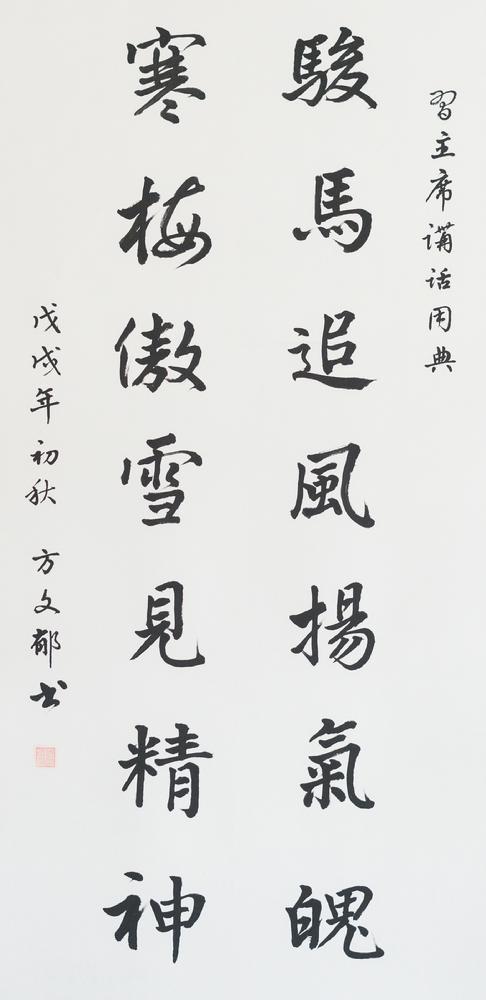 習主席講话用典
駿馬追風揚氣魄
寒梅傲雪見精神
戊戌年初秋 方文郁书